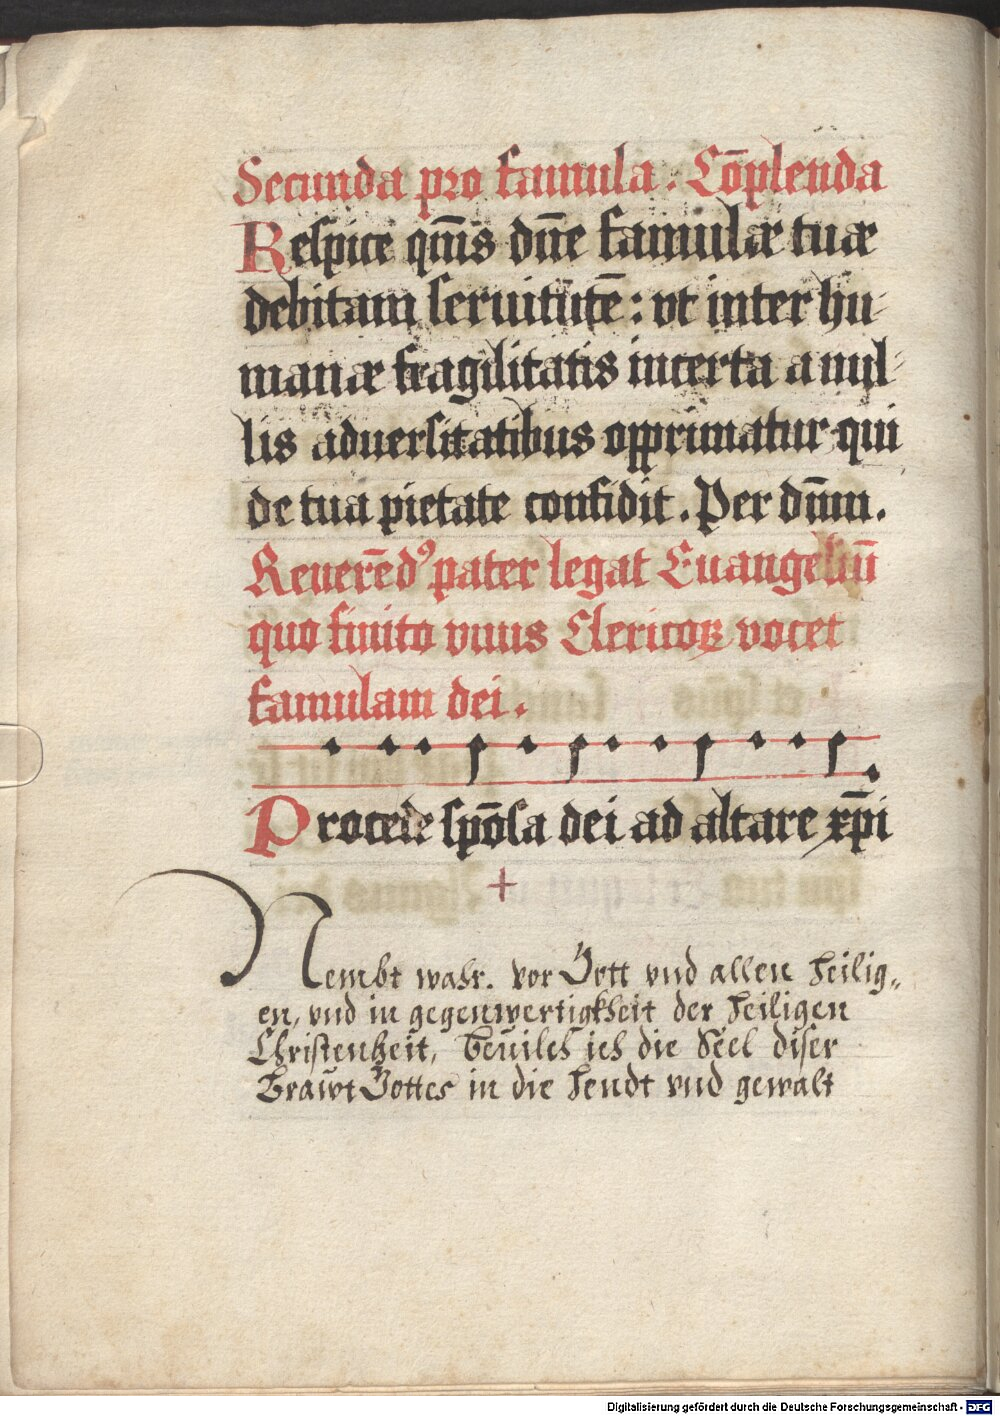 Secunda pro famula. Cōplenda
Respice qm̄s dn̄e famulæ tuæ
debitam seruitutē: vt inter hu-
manæ fragilitatis incerta a nul-
lis aduersitatibus opprimatur qui
de tua pietate confidit. Per dn̄m.
Reuerēdꝰ pater legat Euangeliū
quo finito vnus Clericoꝝ vocet
famulam dei.
Procede spōsa dei ad altare xp̄i
Nembt wahr. vor Gott vnd allen heilig„
en, vnd in gegenwertigkheit der heiligen
Christenheit, Beuilch ich die Seel diser
Brawt Gottes in die hendt vnd gewalt
Digitalisierung gefördert durch die Deutsche Forschungsgemeinschaft - DFG